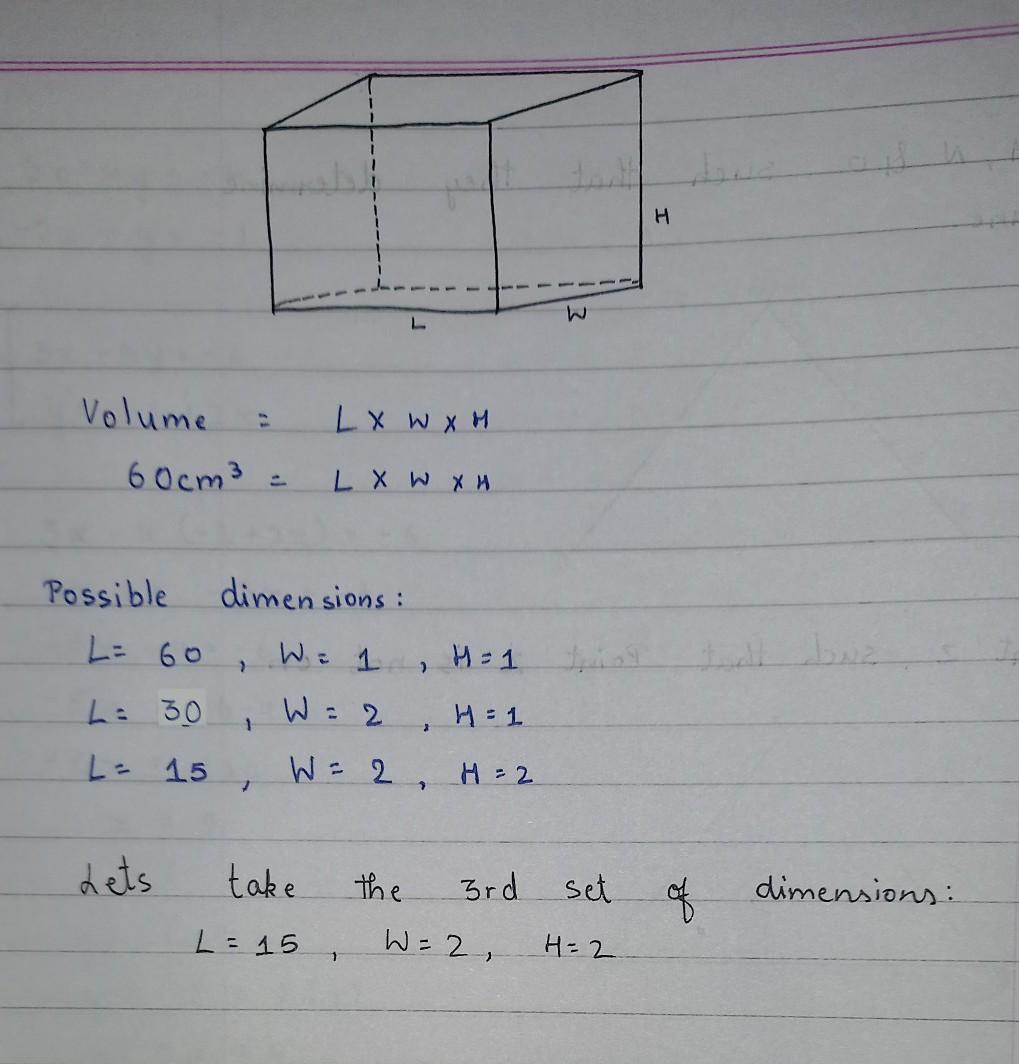 H
L
W
Volume = L X W X H
60cm³ = L X W X H
Possible dimensions:
L= 60 , W= 1 , H=1
L= 30 , W = 2 , H=1
L= 15 , W = 2 , H=2
Lets take the 3rd set of dimensions:
L=15 , W=2, H=2